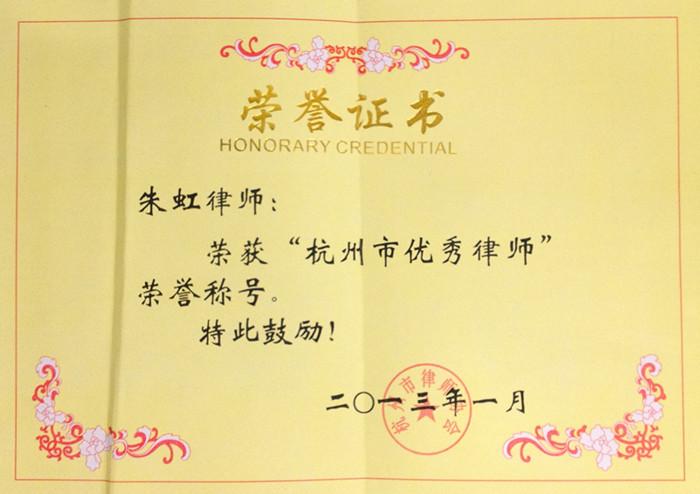 荣誉证书
HONORARY CREDENTIAL
朱虹律师：
荣获“杭州市优秀律师”
荣誉称号。
特此鼓励！
二〇一三年一月
杭州市律师协会